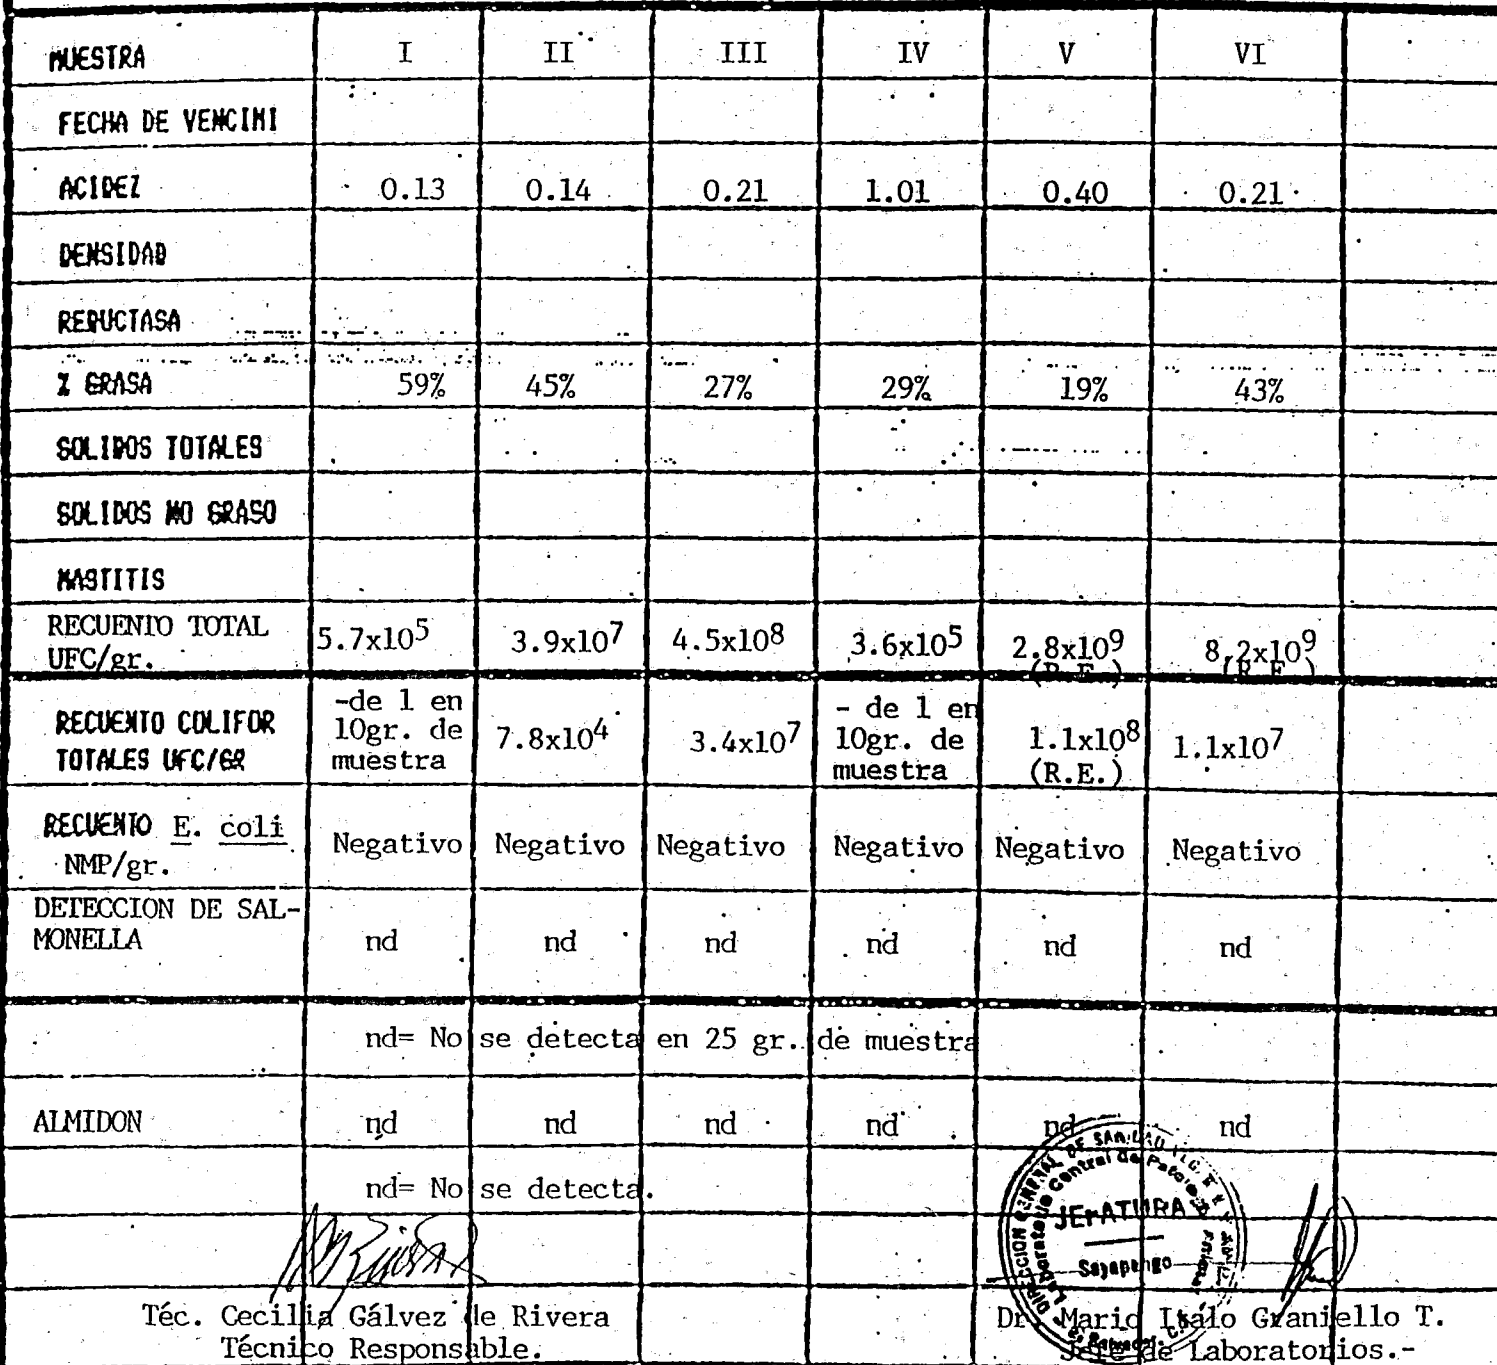 MUESTRA I II III IV V VI
FECHA DE VENCIMI
ACIDEZ 0.13 0.14 0.21 1.01 0.40 0.21
DENSIDAD
REDUCTASA
% GRASA 59% 45% 27% 29% 19% 43%
SOLIDOS TOTALES
SOLIDOS NO GRASO
MASTITIS
RECUENTO TOTAL
UFC/gr. 5.7x10⁵ 3.9x10⁷ 4.5x10⁸ 3.6x10⁵ 2.8x10⁹ 8.2x10⁹
(R.E.) (R.E.)
RECUENTO COLIFOR
TOTALES UFC/GR
-de 1 en
10gr. de
muestra
7.8x10⁴
3.4x10⁷
- de 1 en
10gr. de
muestra
1.1x10⁸
(R.E.)
1.1x10⁷
RECUENTO E. coli
NMP/gr. Negativo Negativo Negativo Negativo Negativo Negativo
DETECCION DE SAL-
MONELLA nd nd nd nd nd nd
nd= No se detecta en 25 gr. de muestra
ALMIDON nd nd nd nd nd nd
nd= No se detecta.
DIRECCION GENERAL DE SANIDAD
Laboratorio Central de
JEFATURA
Soyapango
El Salvador, C.A.
Téc. Cecilia Gálvez de Rivera
Técnico Responsable.
Dr. Mario Italo Graniello T.
Jefe de Laboratorios.-